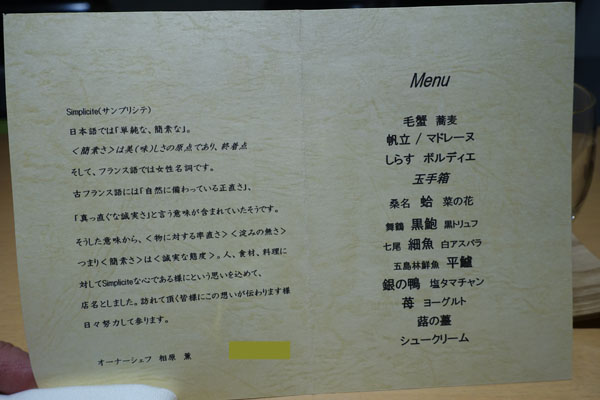 Simplicite(サンプリシテ)
日本語では「単純な、簡素な」。
＜簡素さ＞は美(味)しさの原点であり、終着点
そして、フランス語では女性名詞です。
古フランス語には「自然に備わっている正直さ」、
「真っ直ぐな誠実さ」と言う意味が含まれていたそうです。
そうした意味から、＜物に対する率直さ＞＜淀みの無さ＞
つまり＜簡素さ＞は＜誠実な態度＞。人、食材、料理に
対してSimpliciteな心である様にという思いを込めて、
店名としました。訪れて頂く皆様にこの想いが伝わります様
日々努力して参ります。
オーナーシェフ 相原 薫
Menu
毛蟹 蕎麦
帆立 / マドレーヌ
しらす ボルディエ
玉手箱
桑名 蛤 菜の花
舞鶴 黒鮑 黒トリュフ
七尾 細魚 白アスパラ
五島林鮮魚 平鱸
銀の鴨 塩タマチャン
苺 ヨーグルト
蕗の薹
シュークリーム